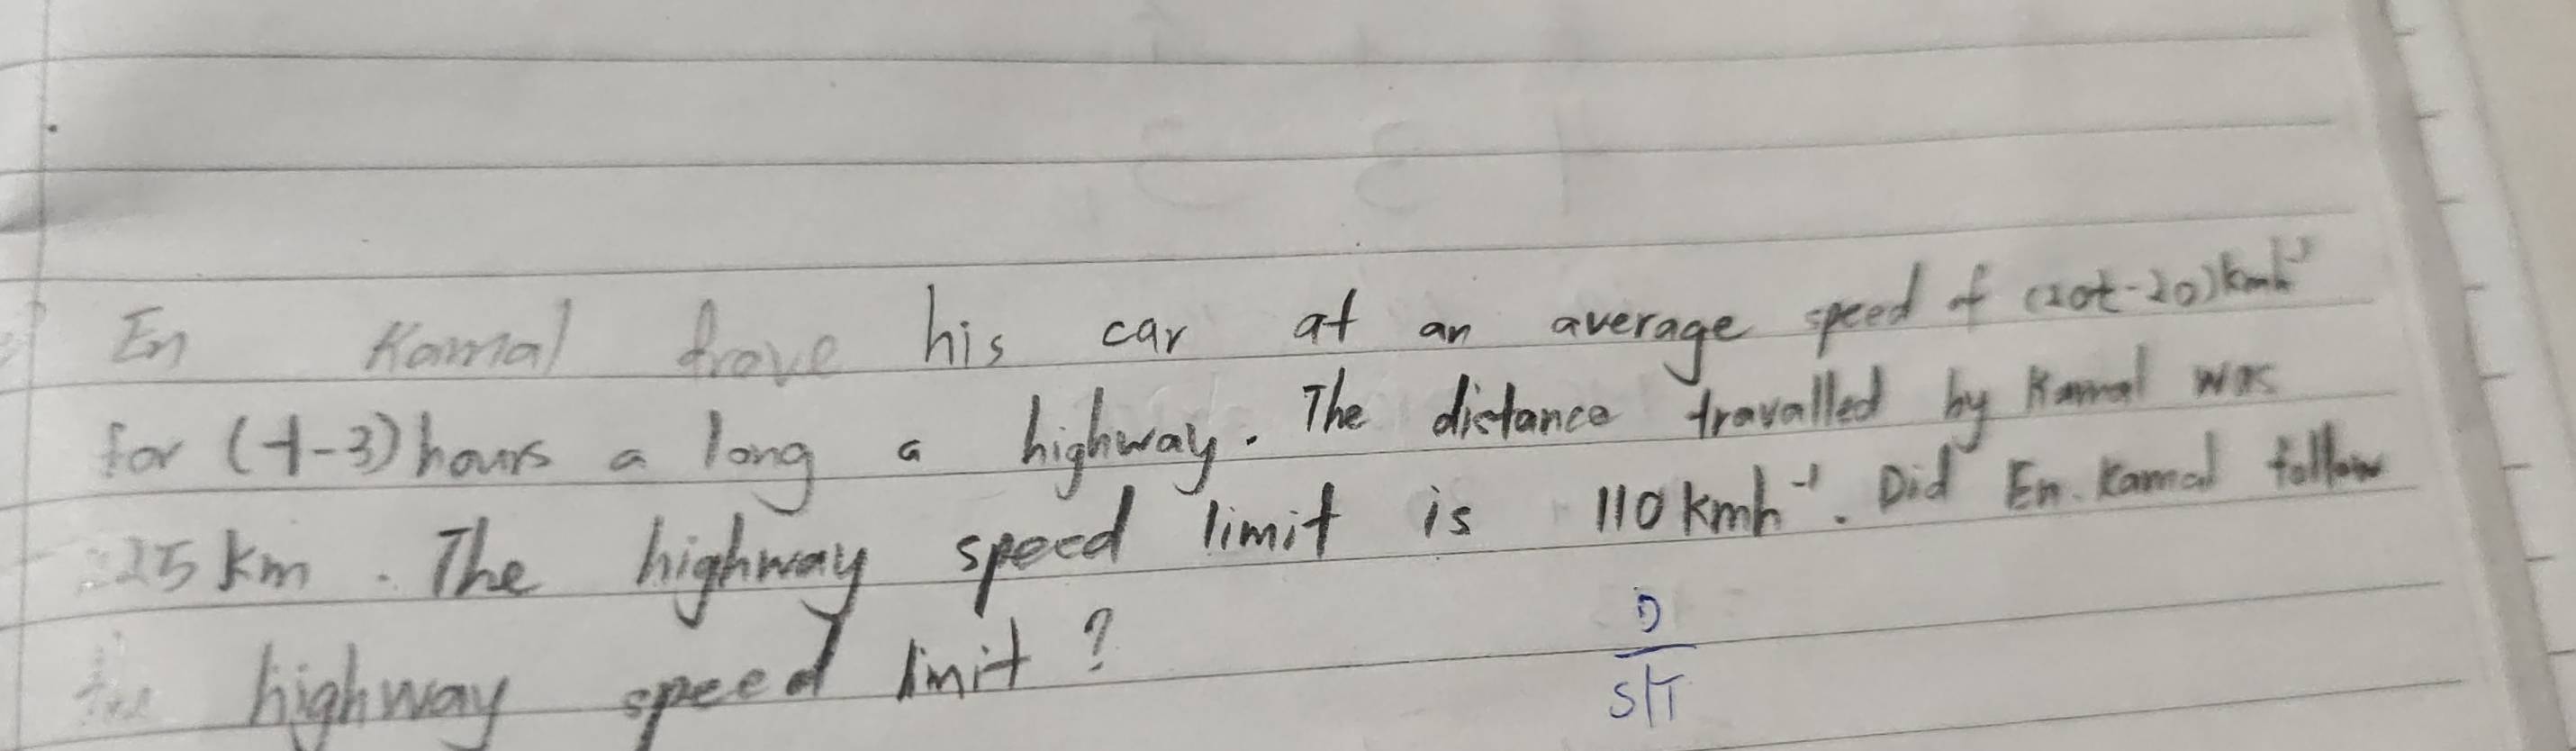 En Kamal drove his car at an average speed of (20t-20)kmh⁻¹
for (t-3) hours a long a highway. The distance travalled by Kamal was
225 km. The highway speed limit is 110 kmh⁻¹. Did En. Kamal follow
the highway speed limit?
D
S|T